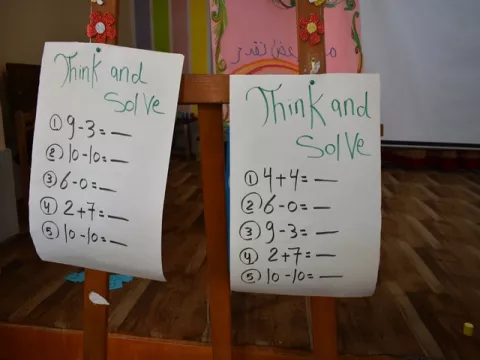 Think and
Solve
① 9-3=—
② 10-10=—
③ 6-0=—
④ 2+7=—
⑤ 10-10=—
Think and
Solve
① 4+4=—
② 6-0=—
③ 9-3=—
④ 2+7=—
⑤ 10-10=—